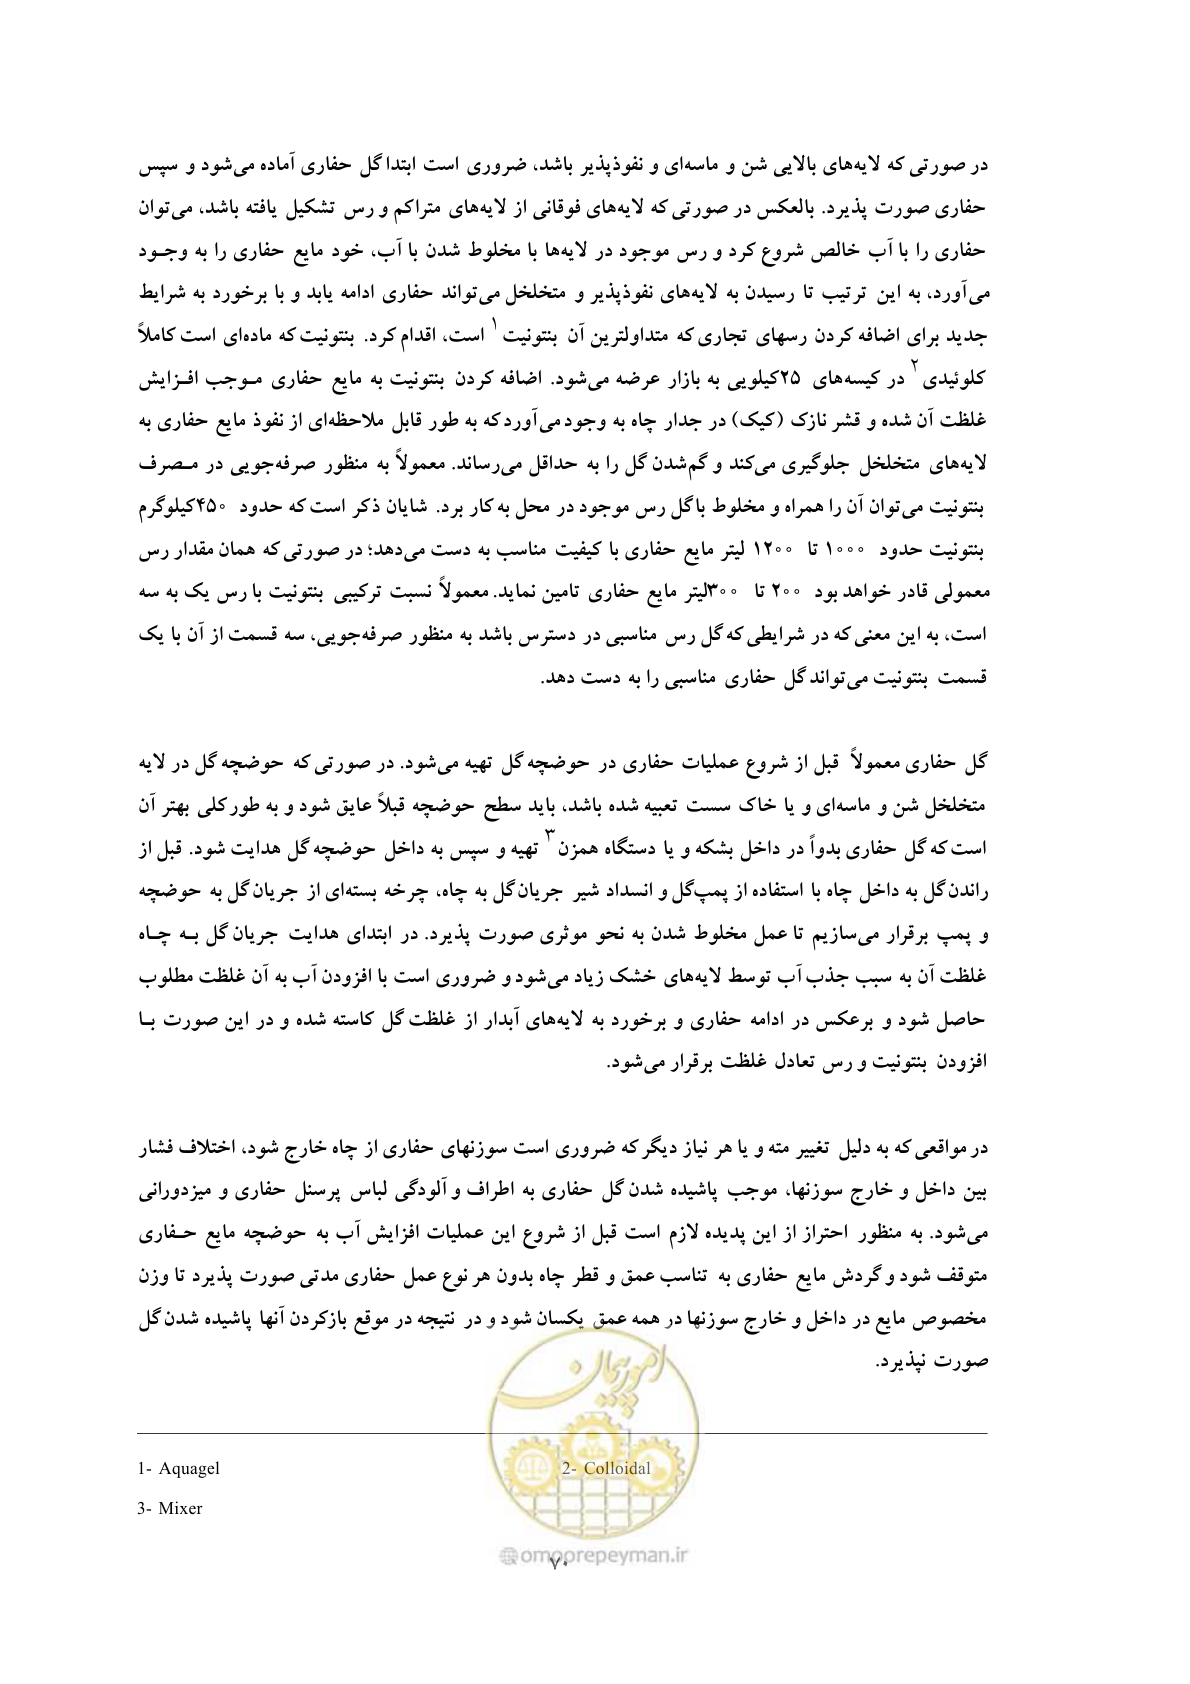 در صورتی که لایه‌های بالایی شن و ماسه‌ای و نفوذپذیر باشد، ضروری است ابتدا گل حفاری آماده می‌شود و سپس
حفاری صورت پذیرد. بالعکس در صورتی که لایه‌های فوقانی از لایه‌های متراکم و رس تشکیل یافته باشد، می‌توان
حفاری را با آب خالص شروع کرد و رس موجود در لایه‌ها با مخلوط شدن با آب، خود مایع حفاری را به وجـود
می‌آورد، به این ترتیب تا رسیدن به لایه‌های نفوذپذیر و متخلخل می‌تواند حفاری ادامه یابد و با برخورد به شرایط
جدید برای اضافه کردن رسهای تجاری که متداولترین آن بنتونیت۱ است، اقدام کرد. بنتونیت که ماده‌ای است کاملاً
کلوئیدی۲ در کیسه‌های ۲۵کیلویی به بازار عرضه می‌شود. اضافه کردن بنتونیت به مایع حفاری مـوجب افـزایش
غلظت آن شده و قشر نازک (کیک) در جدار چاه به وجود می‌آورد که به طور قابل ملاحظه‌ای از نفوذ مایع حفاری به
لایه‌های متخلخل جلوگیری می‌کند و گم‌شدن گل را به حداقل می‌رساند. معمولاً به منظور صرفه‌جویی در مـصرف
بنتونیت می‌توان آن را همراه و مخلوط با گل رس موجود در محل به کار برد. شایان ذکر است که حدود ۴۵۰کیلوگرم
بنتونیت حدود ۱۰۰۰ تا ۱۲۰۰ لیتر مایع حفاری با کیفیت مناسب به دست می‌دهد؛ در صورتی که همان مقدار رس
معمولی قادر خواهد بود ۲۰۰ تا ۳۰۰لیتر مایع حفاری تامین نماید. معمولاً نسبت ترکیبی بنتونیت با رس یک به سه
است، به این معنی که در شرایطی که گل رس مناسبی در دسترس باشد به منظور صرفه‌جویی، سه قسمت از آن با یک
قسمت بنتونیت می‌تواند گل حفاری مناسبی را به دست دهد.
گل حفاری معمولاً قبل از شروع عملیات حفاری در حوضچه گل تهیه می‌شود. در صورتی که حوضچه گل در لایه
متخلخل شن و ماسه‌ای و یا خاک سست تعبیه شده باشد، باید سطح حوضچه قبلاً عایق شود و به طور کلی بهتر آن
است که گل حفاری بدواً در داخل بشکه و یا دستگاه همزن۳ تهیه و سپس به داخل حوضچه گل هدایت شود. قبل از
راندن گل به داخل چاه با استفاده از پمپ گل و انسداد شیر جریان گل به چاه، چرخه بسته‌ای از جریان گل به حوضچه
و پمپ برقرار می‌سازیم تا عمل مخلوط شدن به نحو موثری صورت پذیرد. در ابتدای هدایت جریان گل بـه چـاه
غلظت آن به سبب جذب آب توسط لایه‌های خشک زیاد می‌شود و ضروری است با افزودن آب به آن غلظت مطلوب
حاصل شود و برعکس در ادامه حفاری و برخورد به لایه‌های آبدار از غلظت گل کاسته شده و در این صورت بـا
افزودن بنتونیت و رس تعادل غلظت برقرار می‌شود.
در مواقعی که به دلیل تغییر مته و یا هر نیاز دیگر که ضروری است سوزنهای حفاری از چاه خارج شود، اختلاف فشار
بین داخل و خارج سوزنها، موجب پاشیده شدن گل حفاری به اطراف و آلودگی لباس پرسنل حفاری و میزدورانی
می‌شود. به منظور احتراز از این پدیده لازم است قبل از شروع این عملیات افزایش آب به حوضچه مایع حـفاری
متوقف شود و گردش مایع حفاری به تناسب عمق و قطر چاه بدون هر نوع عمل حفاری مدتی صورت پذیرد تا وزن
مخصوص مایع در داخل و خارج سوزنها در همه عمق یکسان شود و در نتیجه در موقع بازکردن آنها پاشیده شدن گل
صورت نپذیرد.
امور پیمان
1- Aquagel 2- Colloidal
3- Mixer
@omoorepeyman.ir
۷۰